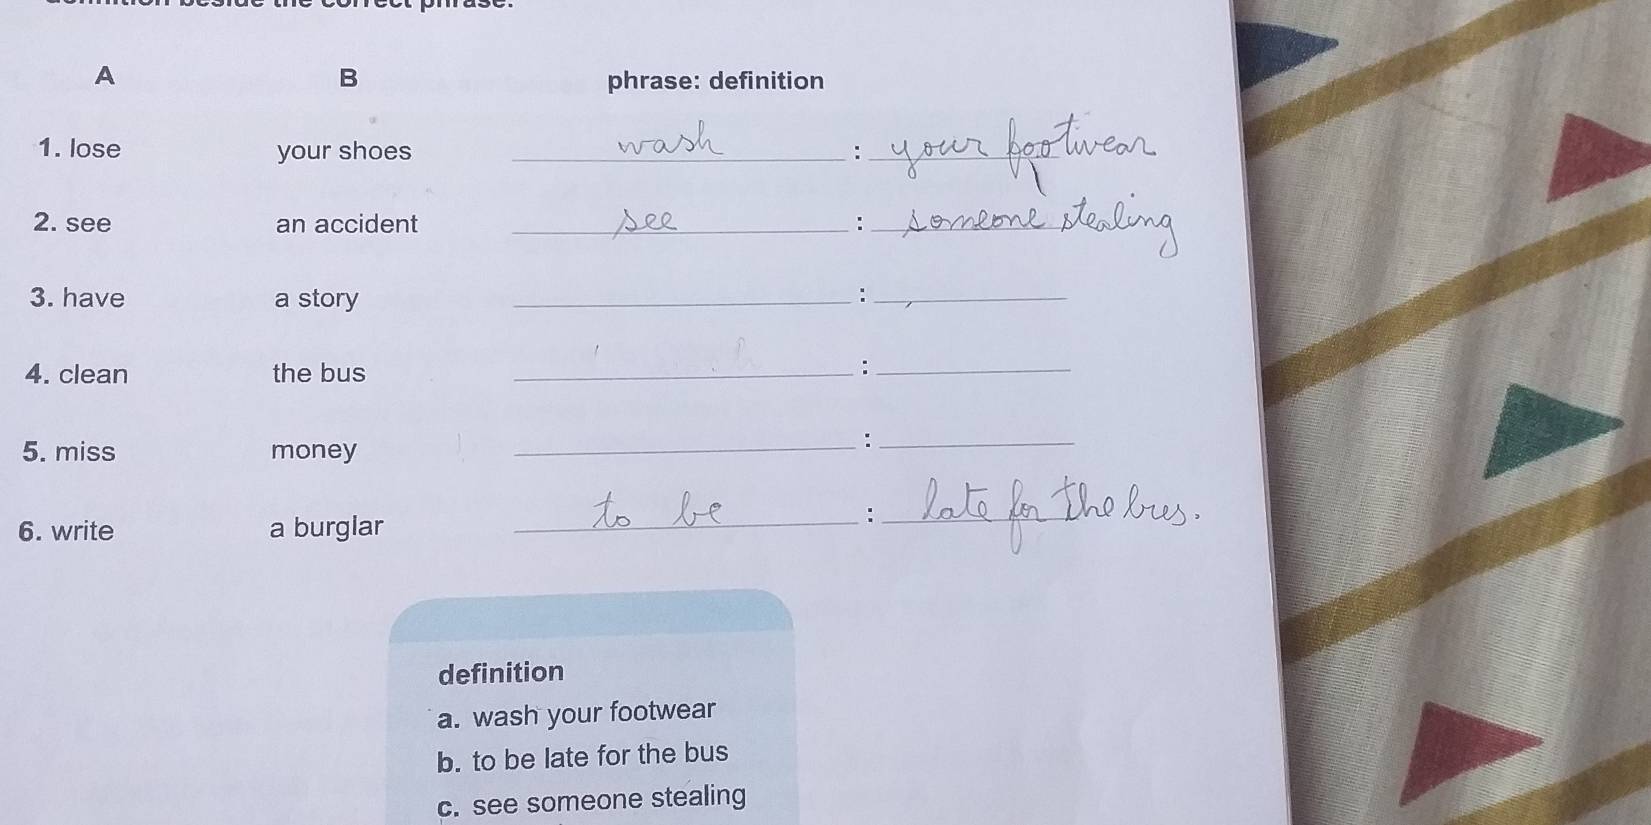 definition beside the correct phrase.
A B phrase: definition
1. lose your shoes wash : your footwear
2. see an accident see : someone stealing
3. have a story :
4. clean the bus :
5. miss money :
6. write a burglar to be : late for the bus.
definition
a. wash your footwear
b. to be late for the bus
c. see someone stealing